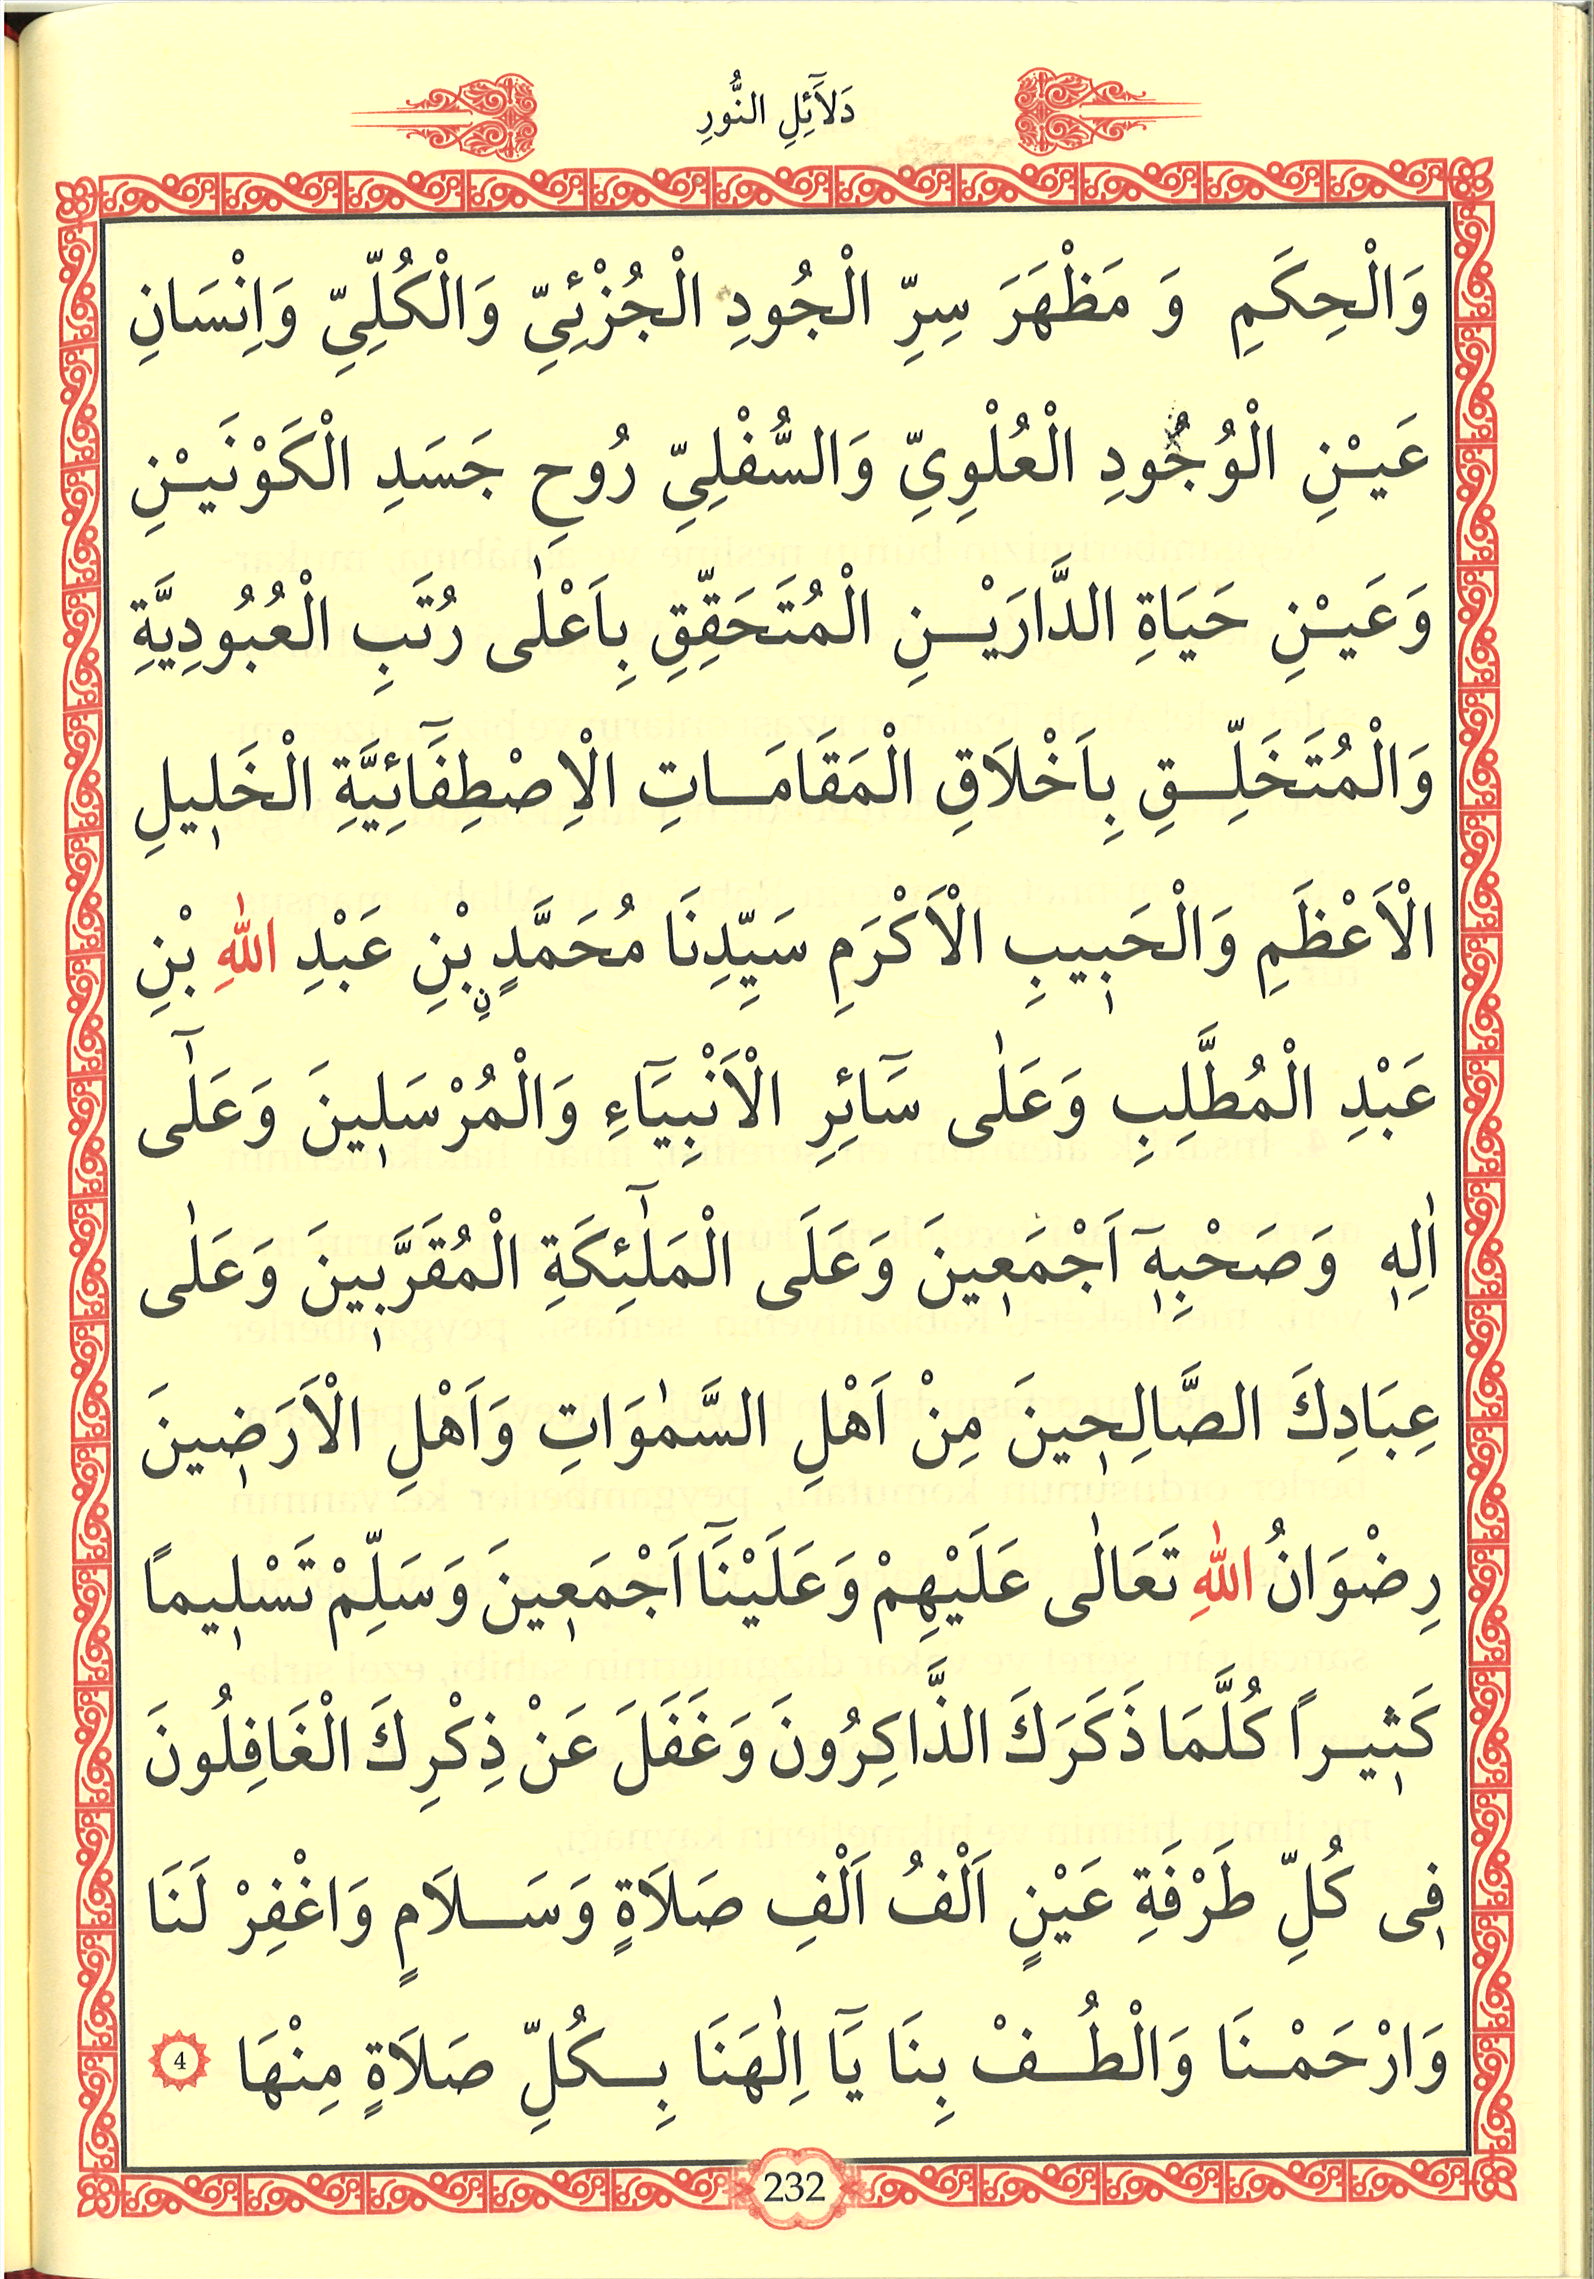 دَلَٓائِلِ النُّورِ
وَالْحِكَمِ وَ مَظْهَرَ سِرِّ الْجُودِ الْجُزْئِيِّ وَالْكُلِّيِّ وَاِنْسَانِ
عَيْنِ الْوُجُودِ الْعُلْوِىِّ وَالسُّفْلِيِّ رُوحِ جَسَدِ الْكَوْنَيْنِ
وَعَيْنِ حَيَاةِ الدَّارَيْنِ الْمُتَحَقِّقِ بِاَعْلٰى رُتَبِ الْعُبُودِيَّةِ
وَالْمُتَخَلِّقِ بِاَخْلَاقِ الْمَقَامَاتِ الْاِصْطِفَٓائِيَّةِ الْخَلٖيلِ
الْاَعْظَمِ وَالْحَبٖيبِ الْاَكْرَمِ سَيِّدِنَا مُحَمَّدٍ نِ بْنِ عَبْدِ اللّٰهِ بْنِ
عَبْدِ الْمُطَّلِبِ وَعَلٰى سَٓائِرِ الْاَنْبِيَٓاءِ وَالْمُرْسَلٖينَ وَعَلٰٓى
اٰلِهٖ وَصَحْبِهٖٓ اَجْمَعٖينَ وَعَلَى الْمَلٰٓئِكَةِ الْمُقَرَّبٖينَ وَعَلٰى
عِبَادِكَ الصَّالِحٖينَ مِنْ اَهْلِ السَّمٰوَاتِ وَاَهْلِ الْاَرَضٖينَ
رِضْوَانُ اللّٰهِ تَعَالٰى عَلَيْهِمْ وَعَلَيْنَٓا اَجْمَعٖينَ وَسَلِّمْ تَسْلٖيماً
كَثٖيراً كُلَّمَا ذَكَرَكَ الذَّاكِرُونَ وَغَفَلَ عَنْ ذِكْرِكَ الْغَافِلُونَ
فٖى كُلِّ طَرْفَةِ عَيْنٍ اَلْفُ اَلْفِ صَلَاةٍ وَسَلَامٍ وَاغْفِرْ لَنَا
وَارْحَمْنَا وَالْطُفْ بِنَا يَٓا اِلٰهَنَا بِكُلِّ صَلَاةٍ مِنْهَا 4
232